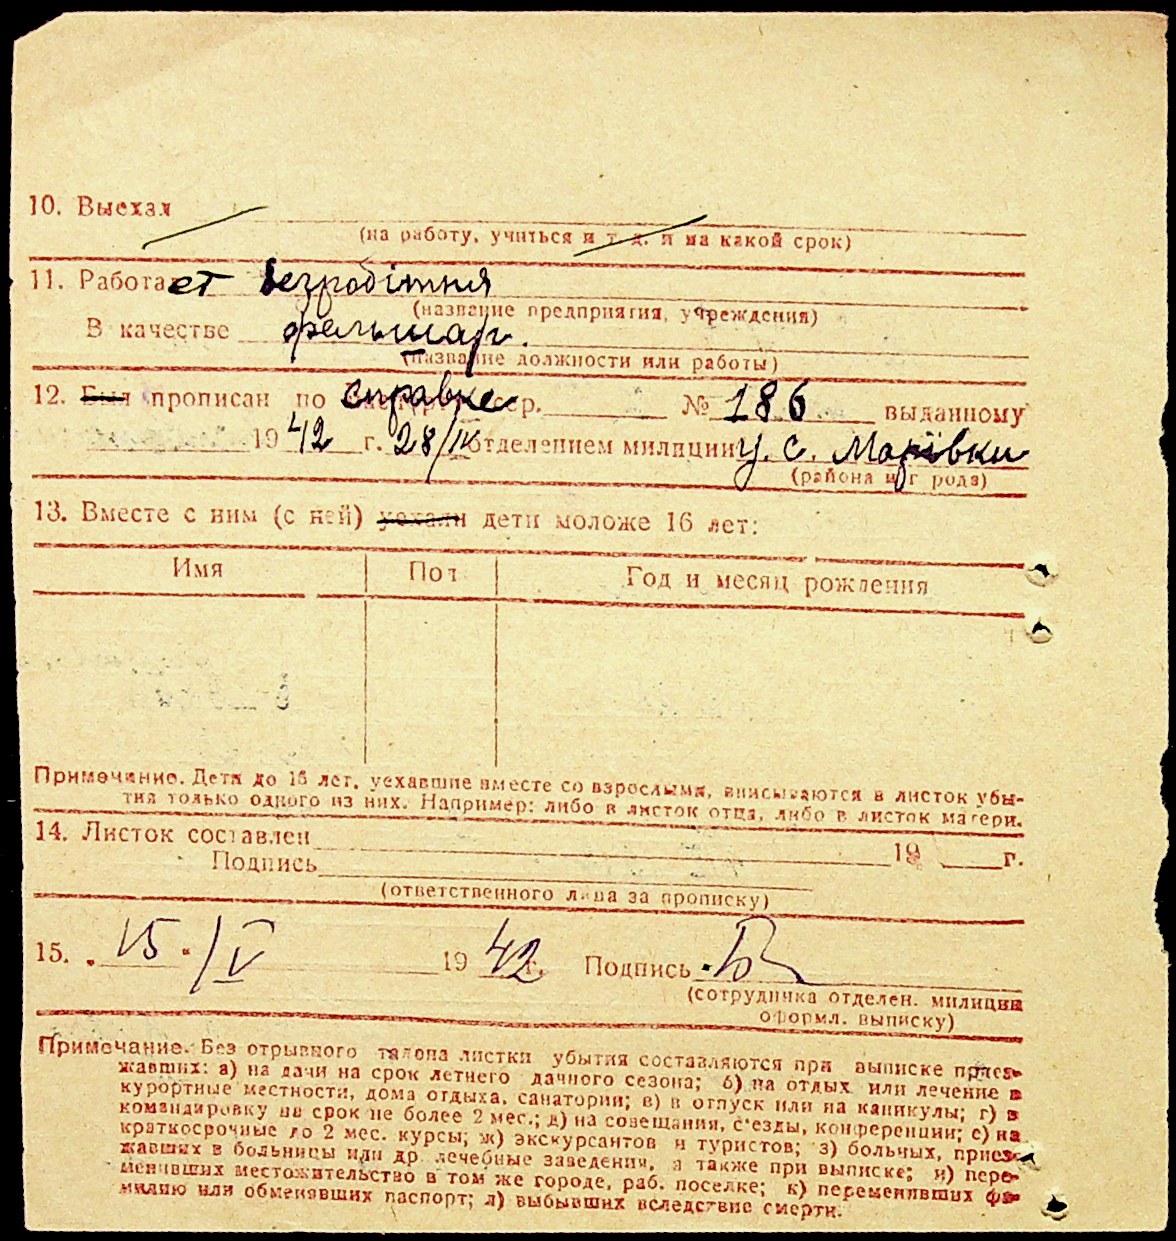 10. Выехал
(на работу, учиться и т. д. и на какой срок)
11. Работает безробітня
(название предприятия, учреждения)
В качестве фельшар.
(название должности или работы)
12. Был прописан по справке сер. № 186 выданному
19 42 г. 28/IV отделением милиции У. с. Маріївки
(района и города)
13. Вместе с ним (с ней) уехали дети моложе 16 лет:
Имя Пол Год и месяц рождения
Примечание. Дети до 16 лет, уехавшие вместе со взрослыми, вписываются в листок убы-
тия только одного из них. Например: либо в листок отца, либо в листок матери.
14. Листок составлен 19 г.
Подпись
(ответственного лица за прописку)
15. „15“/V 19 42 г. Подпись
(сотрудника отделен. милиции
оформл. выписку)
Примечание. Без отрывного талона листки убытия составляются при выписке приез-
жавших: а) на дачи на срок летнего дачного сезона; б) на отдых или лечение в
курортные местности, дома отдыха, санатории; в) в отпуск или на каникулы; г) в
командировку на срок не более 2 мес.; д) на совещания, с'езды, конференции; е) на
краткосрочные до 2 мес. курсы; ж) экскурсантов и туристов; з) больных, приез-
жавших в больницы или др. лечебные заведения, а также при выписке; и) пере-
менивших местожительство в том же городе, раб. поселке; к) переменивших фа-
милию или обменявших паспорт; л) выбывших вследствие смерти.